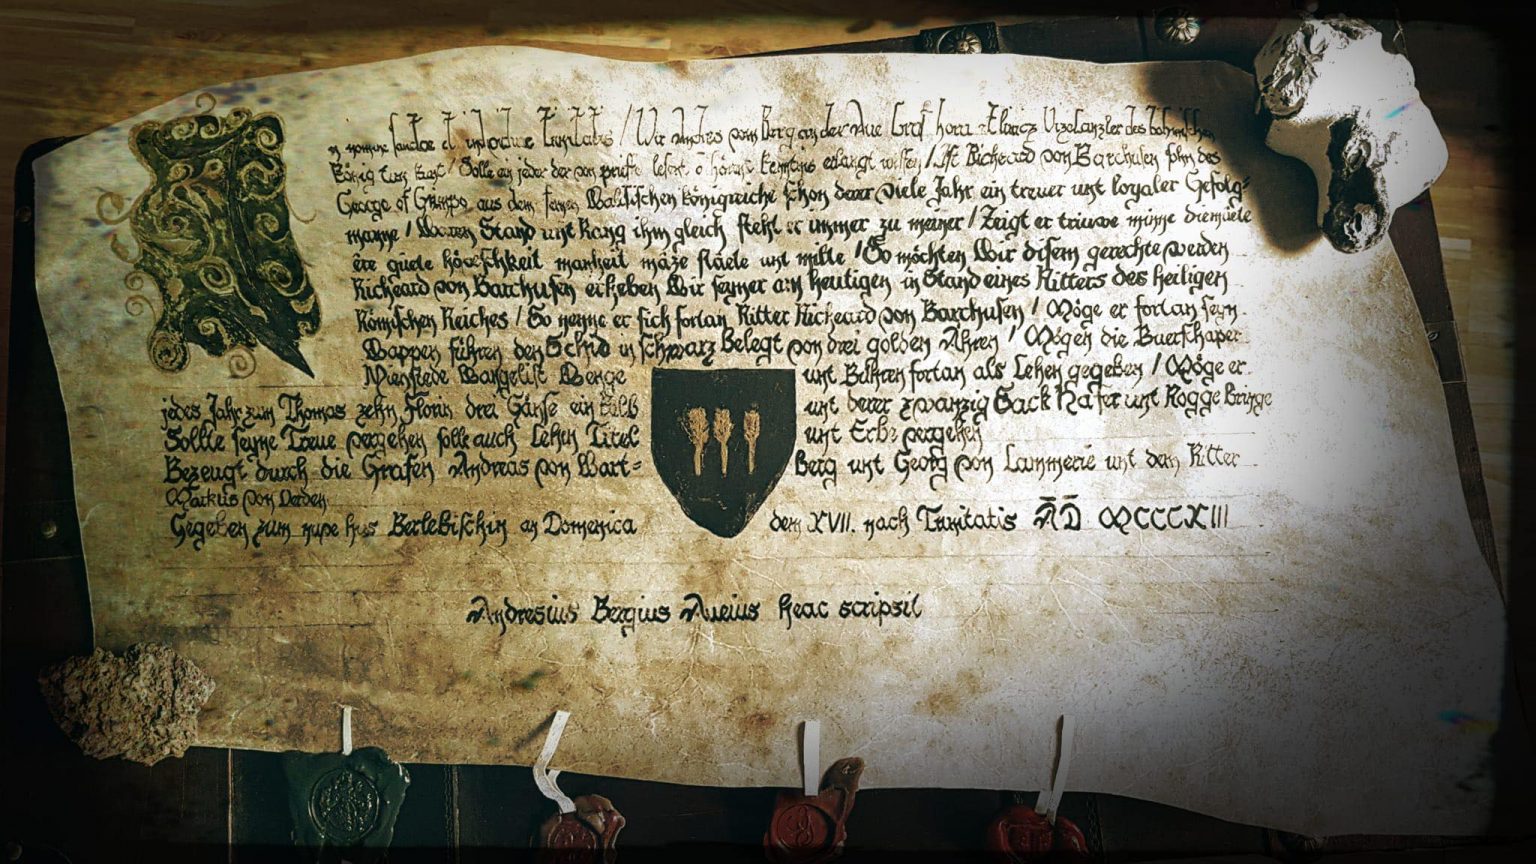 In nomine sanctae et individuae Trinitatis / Wir Andres vom Berg an der Aue Graf horn Vizekanzler des bohmischen
König Unt / Solle ein jeder der von prieffe lesen o hören kentnis erlangt wissen / Ist Rickeard von Barchusen sohn des
George of Grimpo aus dem fernen Walisischen königreiche schon derer viele Jahr ein treuer unt loyaler Gefolg=
manne / Waren Stand unt Rang ihm gleich steht er immer zu meiner / Zeigt er triuwe minne diemüete
ere güete höveschkeit manheit mâze staete unt milte / So möchten Wir disem gerechte werden
Rickeard von Barchusen erheben Wir seyner am heutigen in Stand eines Ritters des heiligen
Römischen Reiches / So nenne er sich fortan Ritter Rickeard von Barchusen / Möge er fortan seyn
Wappen führen den Schid in schwarz belegt von drei golden Ähren / Mögen die Buerschaper
Nienstede Bangelist Wenge unt Böhren fortan als Lehen gegeben / Möge er
jedes Jahr zum Thomas zehn Florin drei Gänse ein Kalb unt derer zwanzig Sack Hafer unt Rogge bringe
Sollte seyne Treue vergehen solle auch Lehen Titel unt Erbe vergehen
Bezeugt durch die Grafen Andreas von Wart= berg unt Georg von Lummerie unt dem Ritter
Markus von Verden
Gegeben zum nupe hus Berlebischin an Domenica dem XVII. nach Trinitatis AD MCCCXIII
Andresius Bergius Aueius heac scripsit